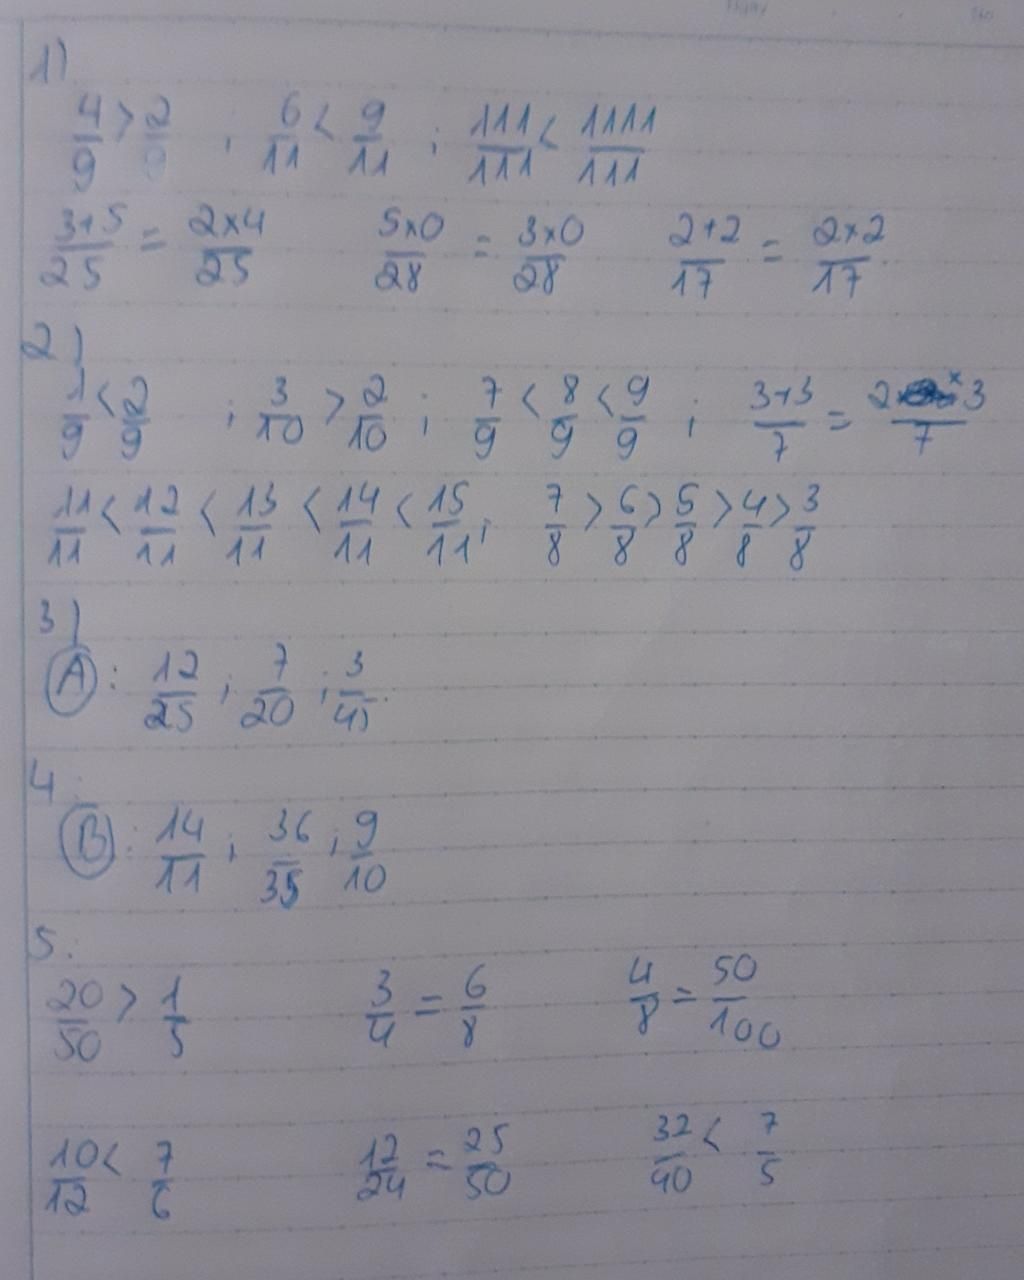 1)
4/9 > 2/9 ; 6/11 < 9/11 ; 111/111 < 1111/111
3+5/25 = 2×4/25 5×0/28 = 3×0/28 2+2/17 = 2×2/17
2)
1/9 < 2/9 ; 3/10 > 2/10 ; 7/9 < 8/9 < 9/9 ; 3+3/7 = 2×3/7
11/11 < 12/11 < 13/11 < 14/11 < 15/11 ; 7/8 > 6/8 > 5/8 > 4/8 > 3/8
3)
A : 12/25 ; 7/20 ; 3/45.
4:
B : 14/11 ; 36/35 ; 9/10
5:
20/50 > 1/5 3/4 = 6/8 4/8 = 50/100
10/12 < 7/6 12/24 = 25/50 32/40 < 7/5